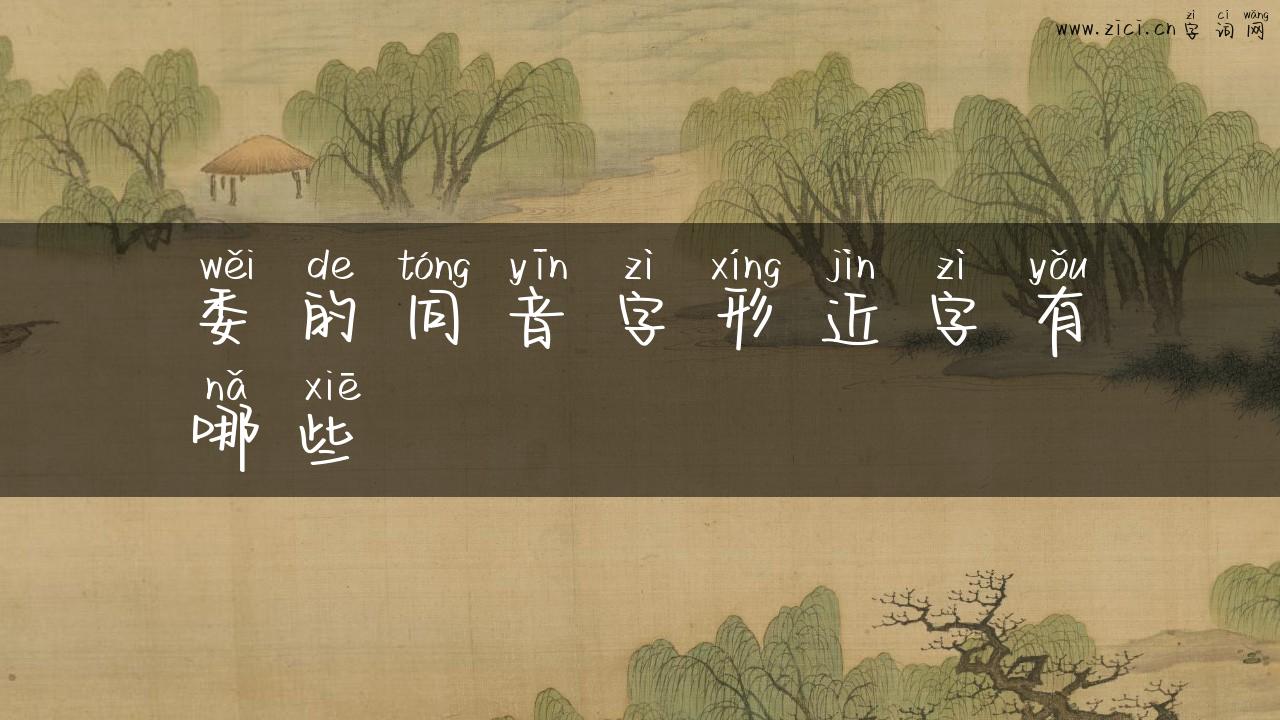 zì cí wǎng
www.zici.cn 字 词 网
wěi de tóng yīn zì xíng jìn zì yǒu
委 的 同 音 字 形 近 字 有
nǎ xiē
哪 些